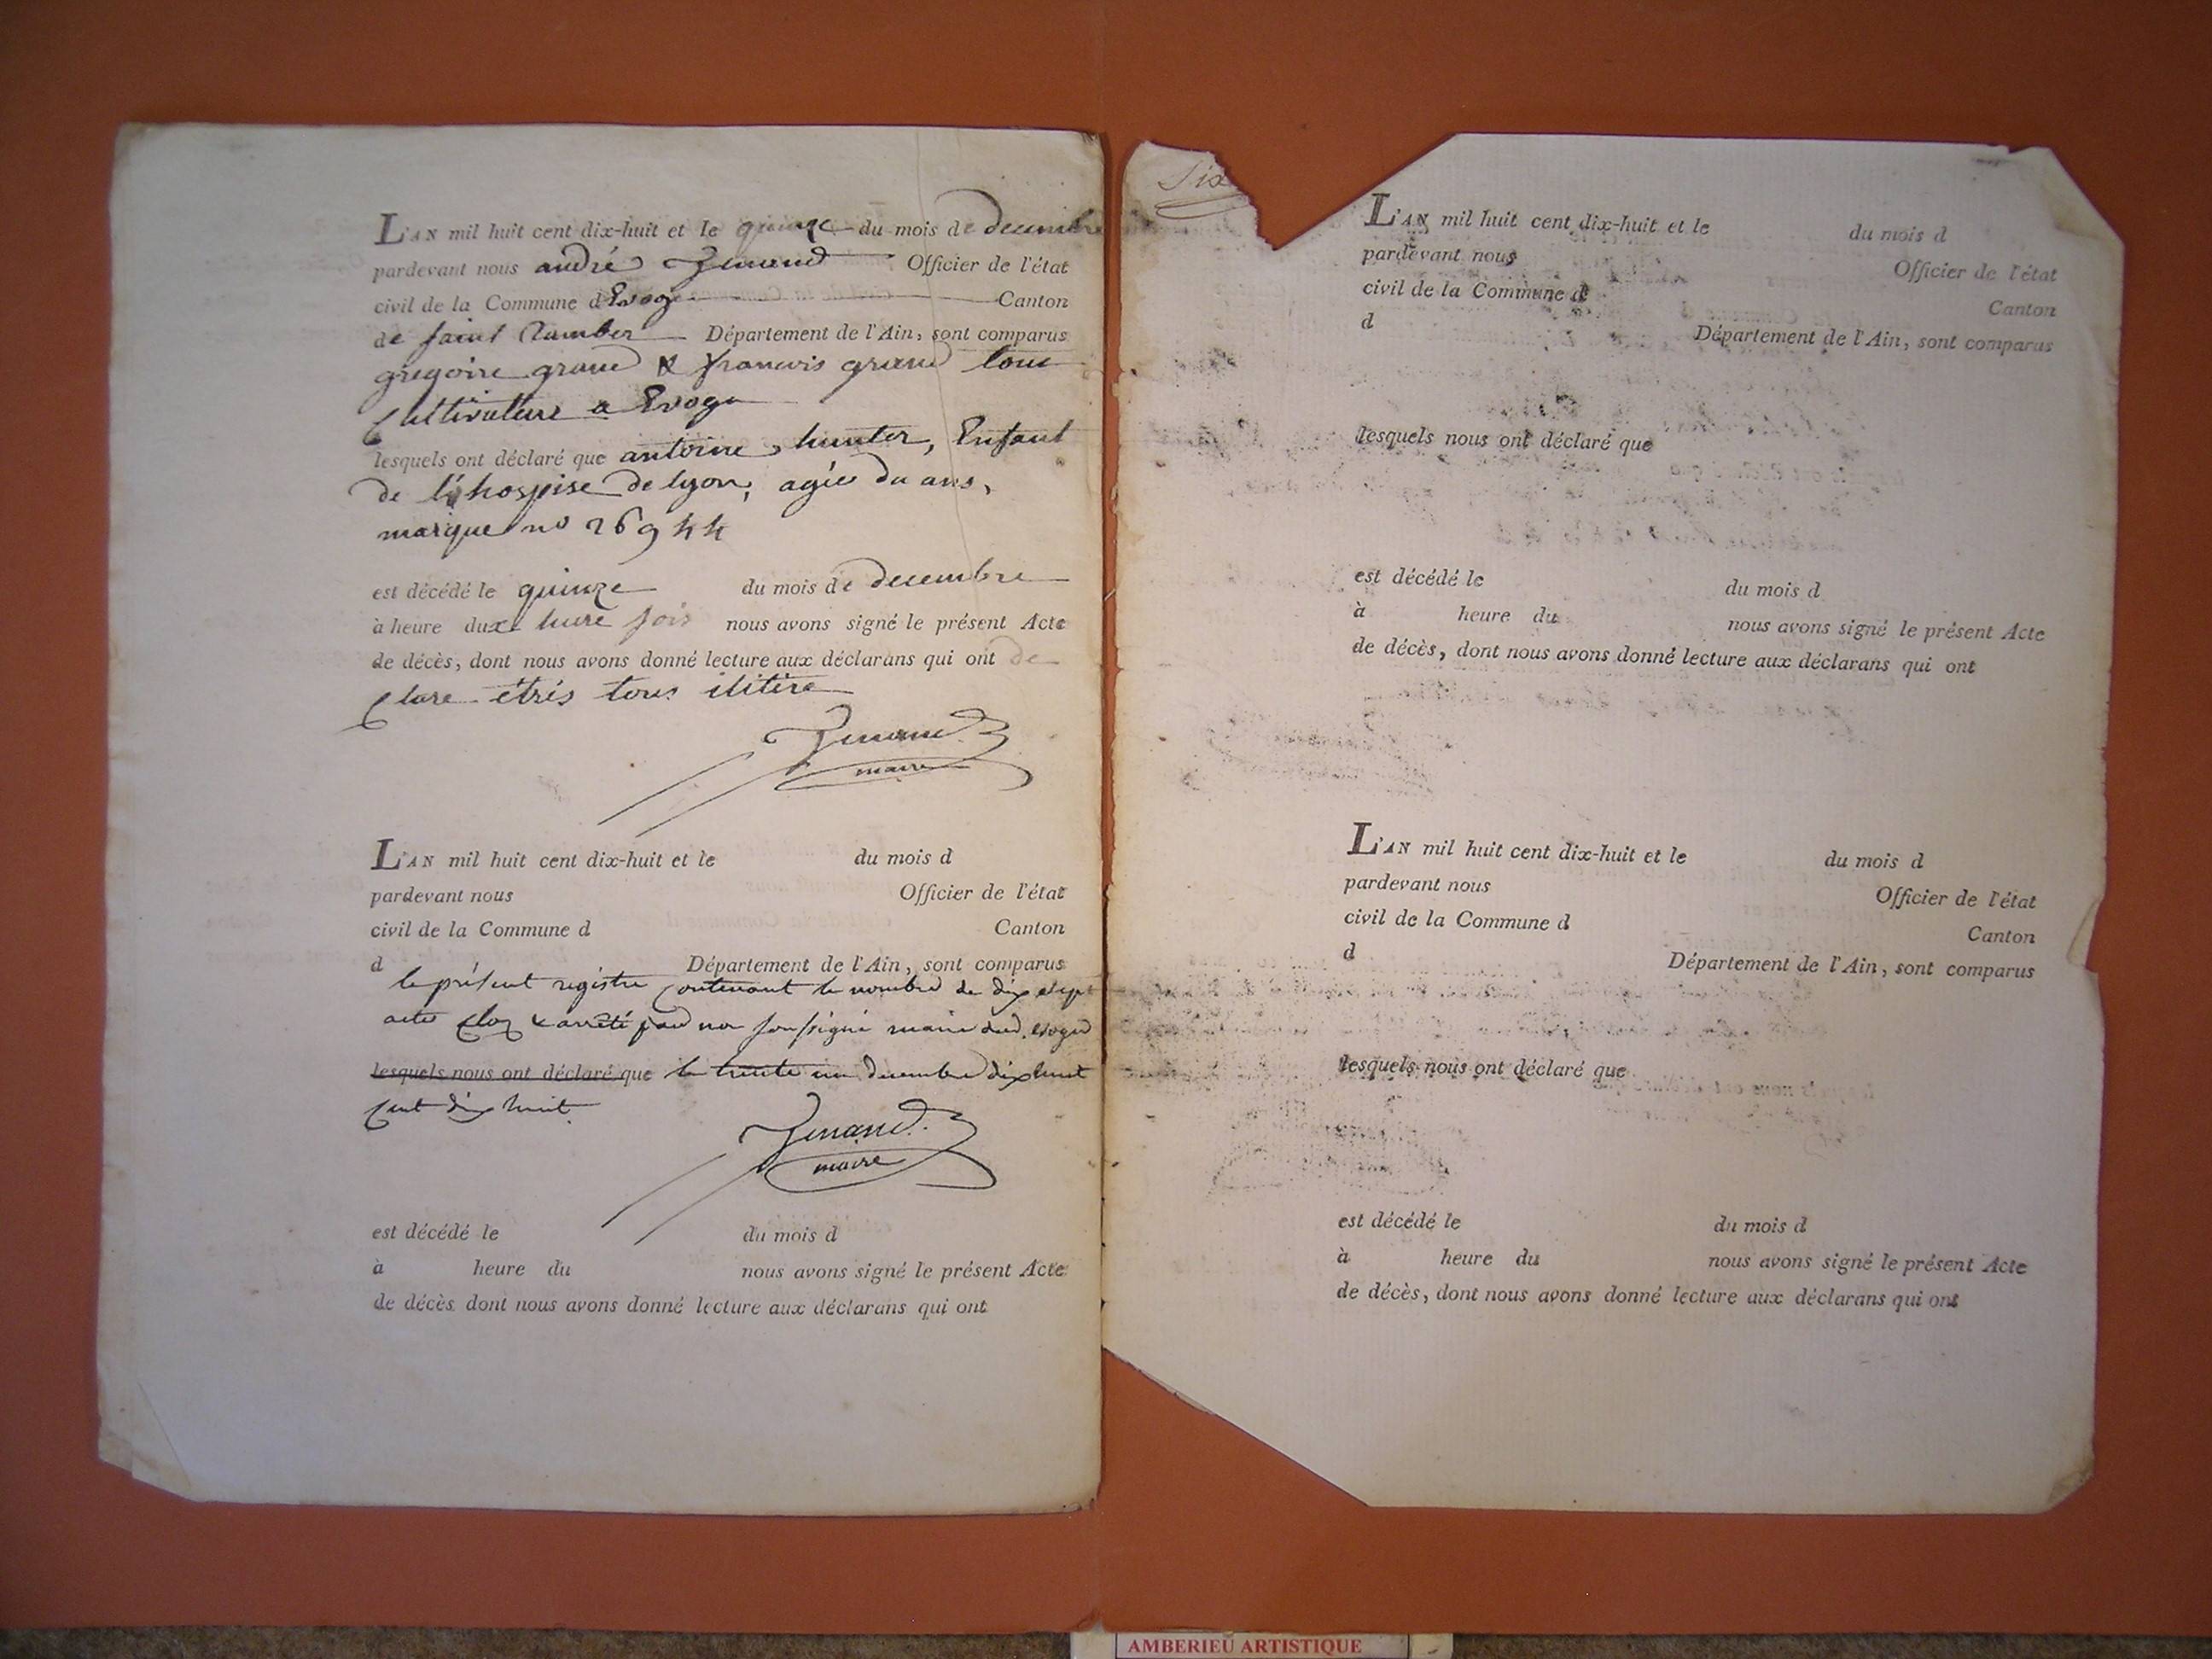 L'AN mil huit cent dix-huit et le quinze du mois de decembre
pardevant nous andré Officier de l'état
civil de la Commune d Evoge Canton
de saint Ramber Département de l'Ain, sont comparus
gregoire grand & francois grand tous
Cultivateurs a Evoge
lesquels ont déclaré que antoine hunter, Enfant
de l'hospise de lyon, agée du ans,
marque no 26944
est décédé le quinze du mois de decembre
à heure dux hure soir nous avons signé le présent Acte
de décès, dont nous avons donné lecture aux déclarans qui ont de
Clare étrés tous ilitére
maire
L'AN mil huit cent dix-huit et le du mois d
pardevant nous Officier de l'état
civil de la Commune d Canton
d Département de l'Ain, sont comparus
le présent registre Contenant le nombre de dix sept
actes Clos & arrêté par nou soussigné maire dud. evoges
lesquels nous ont déclaré que le trente un decembre dix huit
Cent dix huit
maire
est décédé le du mois d
à heure du nous avons signé le présent Acte
de décès dont nous avons donné lecture aux déclarans qui ont
Six
L'AN mil huit cent dix-huit et le du mois d
pardevant nous Officier de l'état
civil de la Commune d Canton
d Département de l'Ain, sont comparus
lesquels nous ont déclaré que
est décédé le du mois d
à heure du nous avons signé le présent Acte
de décès, dont nous avons donné lecture aux déclarans qui ont
L'AN mil huit cent dix-huit et le du mois d
pardevant nous Officier de l'état
civil de la Commune d Canton
d Département de l'Ain, sont comparus
lesquels nous ont déclaré que
est décédé le du mois d
à heure du nous avons signé le présent Acte
de décès, dont nous avons donné lecture aux déclarans qui ont
AMBERIEU ARTISTIQUE